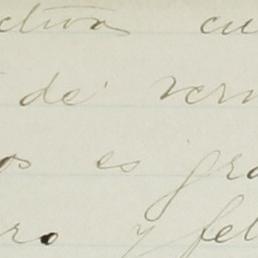 ctiva cu
de vern
os es gra
ro y fel